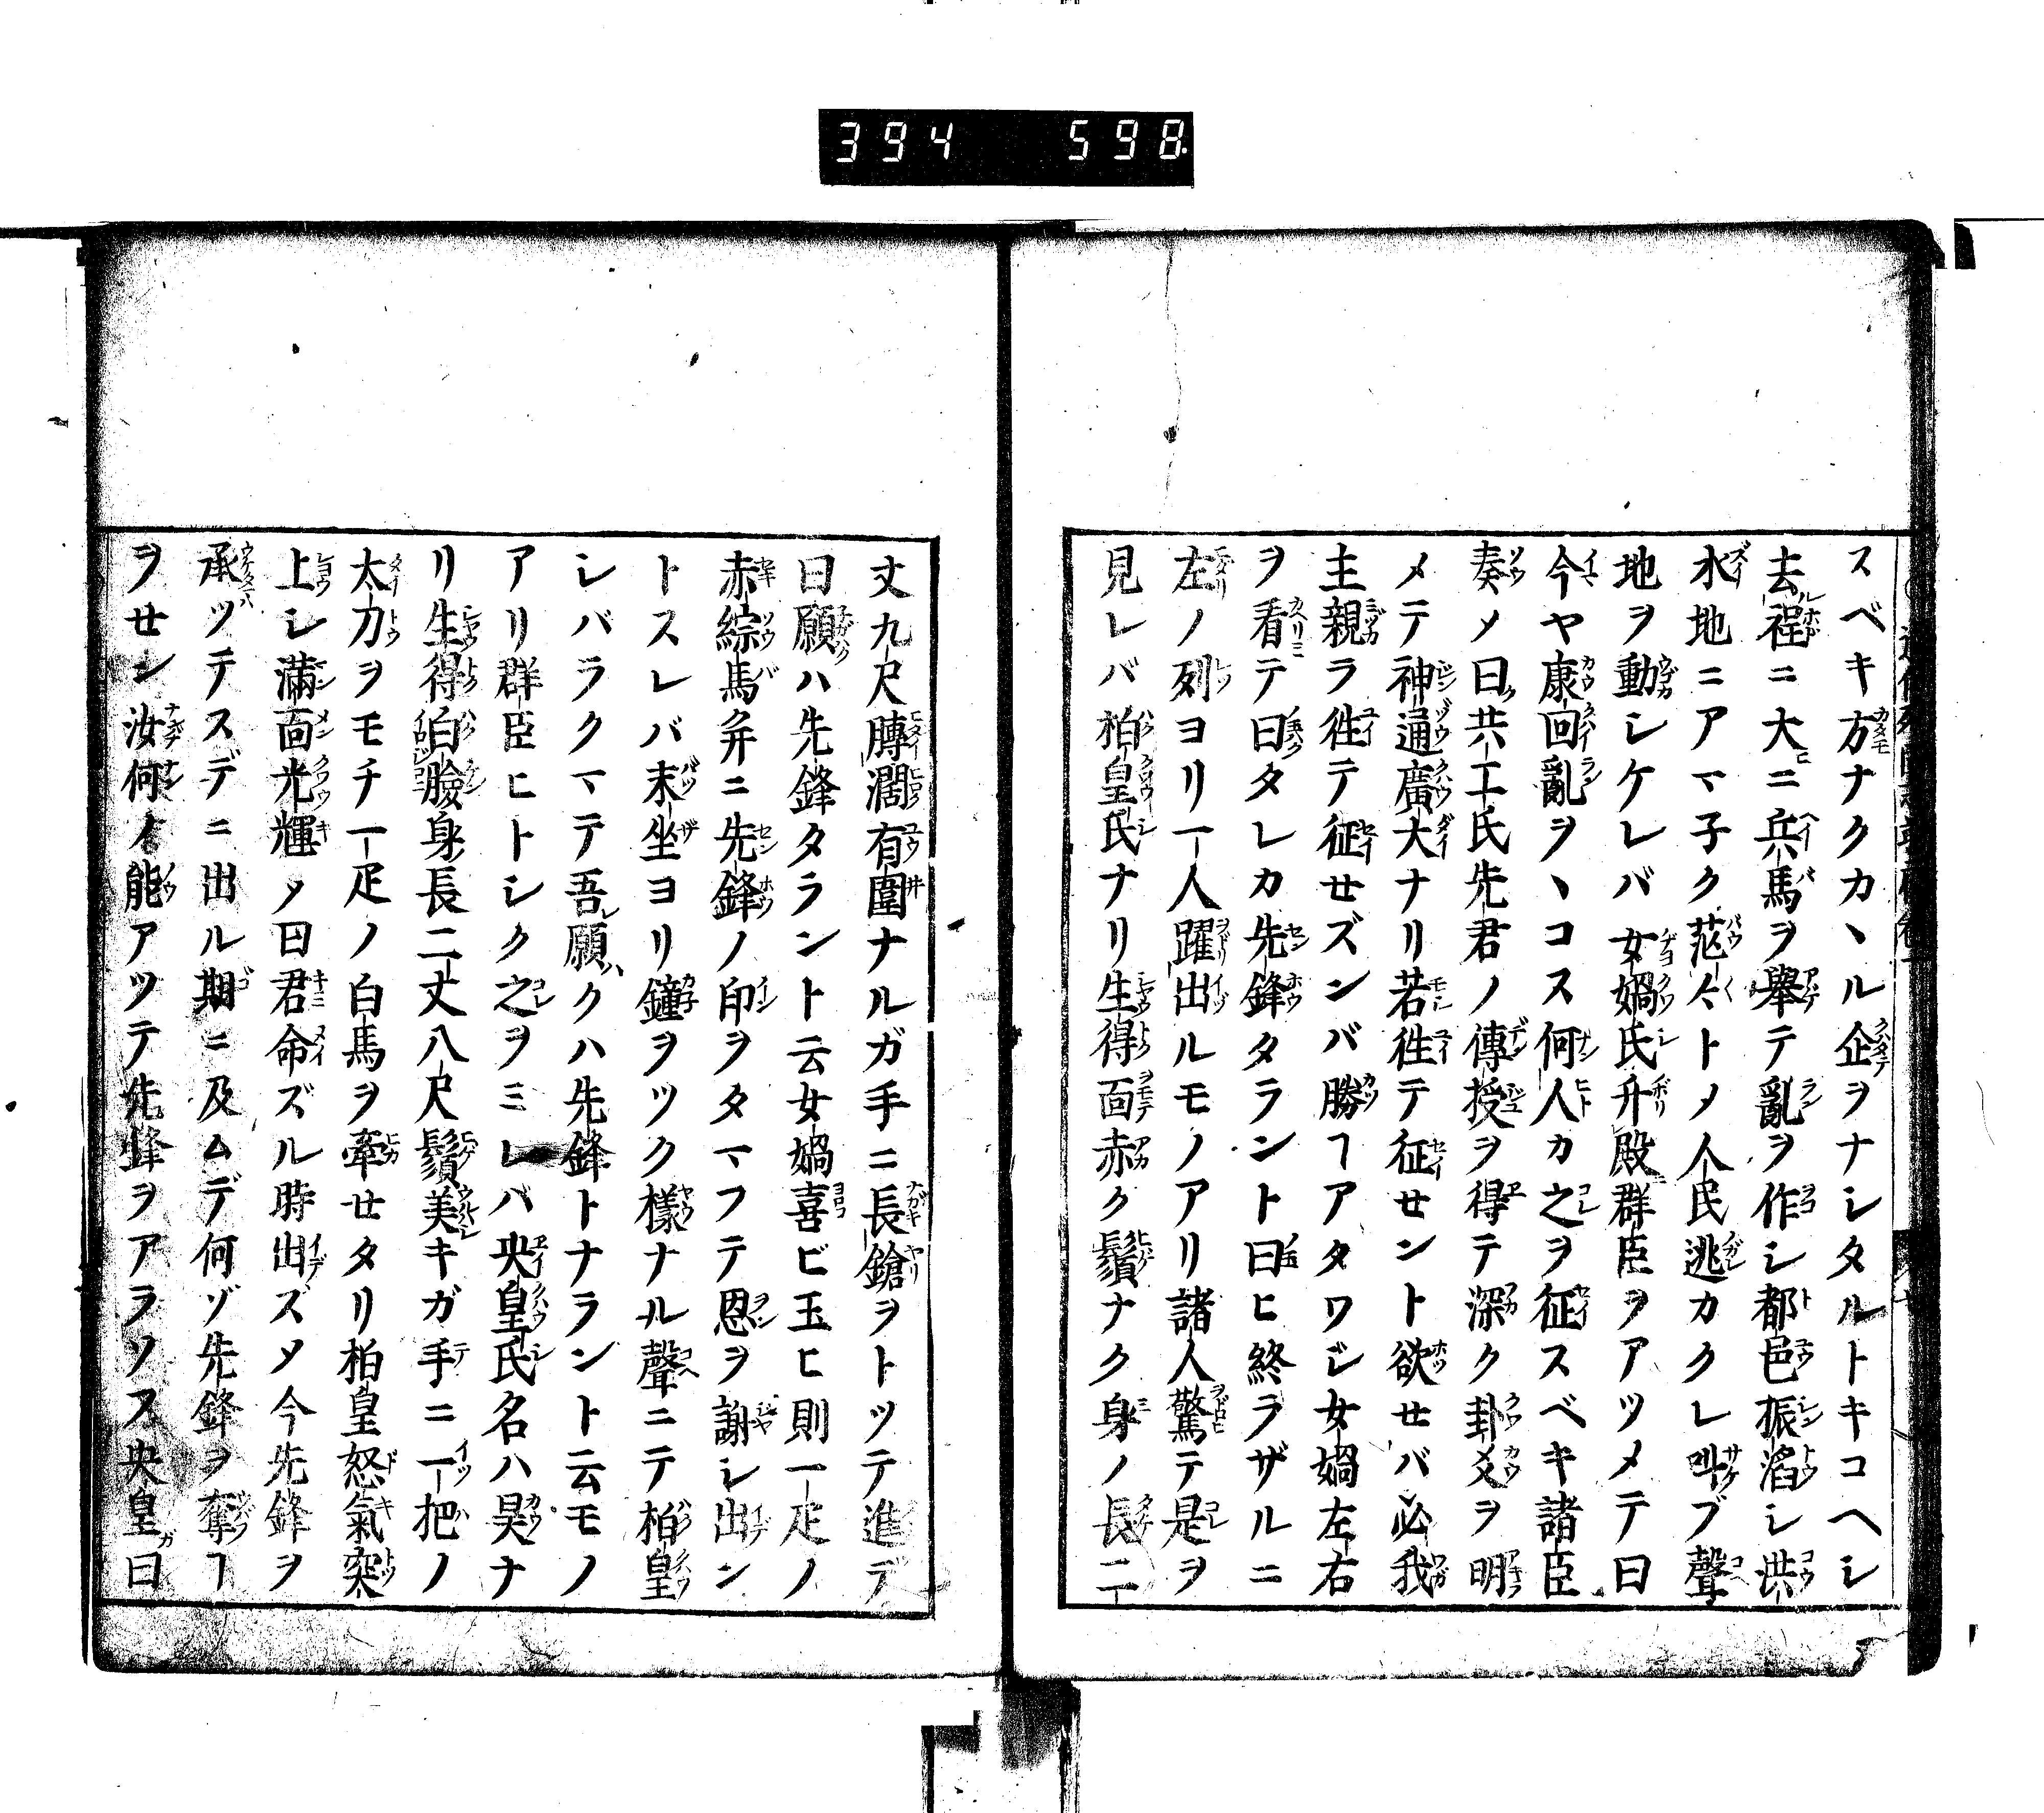 394 598
スベキ方ナクカヽル企ヲナシタルトキコヘシ
去程ニ大ニ兵馬ヲ舉テ亂ヲ作シ都邑振滔シ洪
水地ニアマ子ク茫〻トメ人民逃カクレ叫ブ聲
地ヲ動シケレバ女媧氏升殿群臣ヲアツメテ曰
今ヤ康回亂ヲヽコス何人カ之ヲ征スベキ諸臣
奏メ曰共工氏先君ノ傳授ヲ得テ深ク卦爻ヲ明
メテ神通廣大ナリ若徃テ征セント欲セバ必我
主親ラ徃テ征せズンバ勝ヿアタワジ女媧左右
ヲ看テ曰タレカ先鋒タラント曰ヒ終ラザルニ
左ノ列ヨリ一人躍出ルモノアリ諸人驚テ是ヲ
見レバ柏皇氏ナリ生得面赤ク鬚ナク身ノ長二
丈九尺膊濶有圍ナルガ手ニ長鎗ヲトツテ進デ
曰願ハ先鋒タラント云女媧喜ビ玉ヒ則一疋ノ
赤綜馬并ニ先鋒ノ印ヲタマフテ恩ヲ謝シ出ン
トスレバ末坐ヨリ鐘ヲツク様ナル聲ニテ柏皇
シバラクマテ吾願クハ先鋒トナラント云モノ
アリ群臣ヒトシク之ヲミレバ央皇氏名ハ昊ナ
リ生得白臉身長二丈八尺鬚美キガ手ニ一把ノ
太刀ヲモチ一疋ノ白馬ヲ牽せタリ柏皇怒氣突
上シ滿面光輝メ曰君命ズル時出ズメ今先鋒ヲ
承ツテスデニ出ル期ニ及ムデ何ゾ先鋒ヲ奪ヿ
ヲせン汝何ノ能アツテ先鋒ヲアラソヌ央皇曰